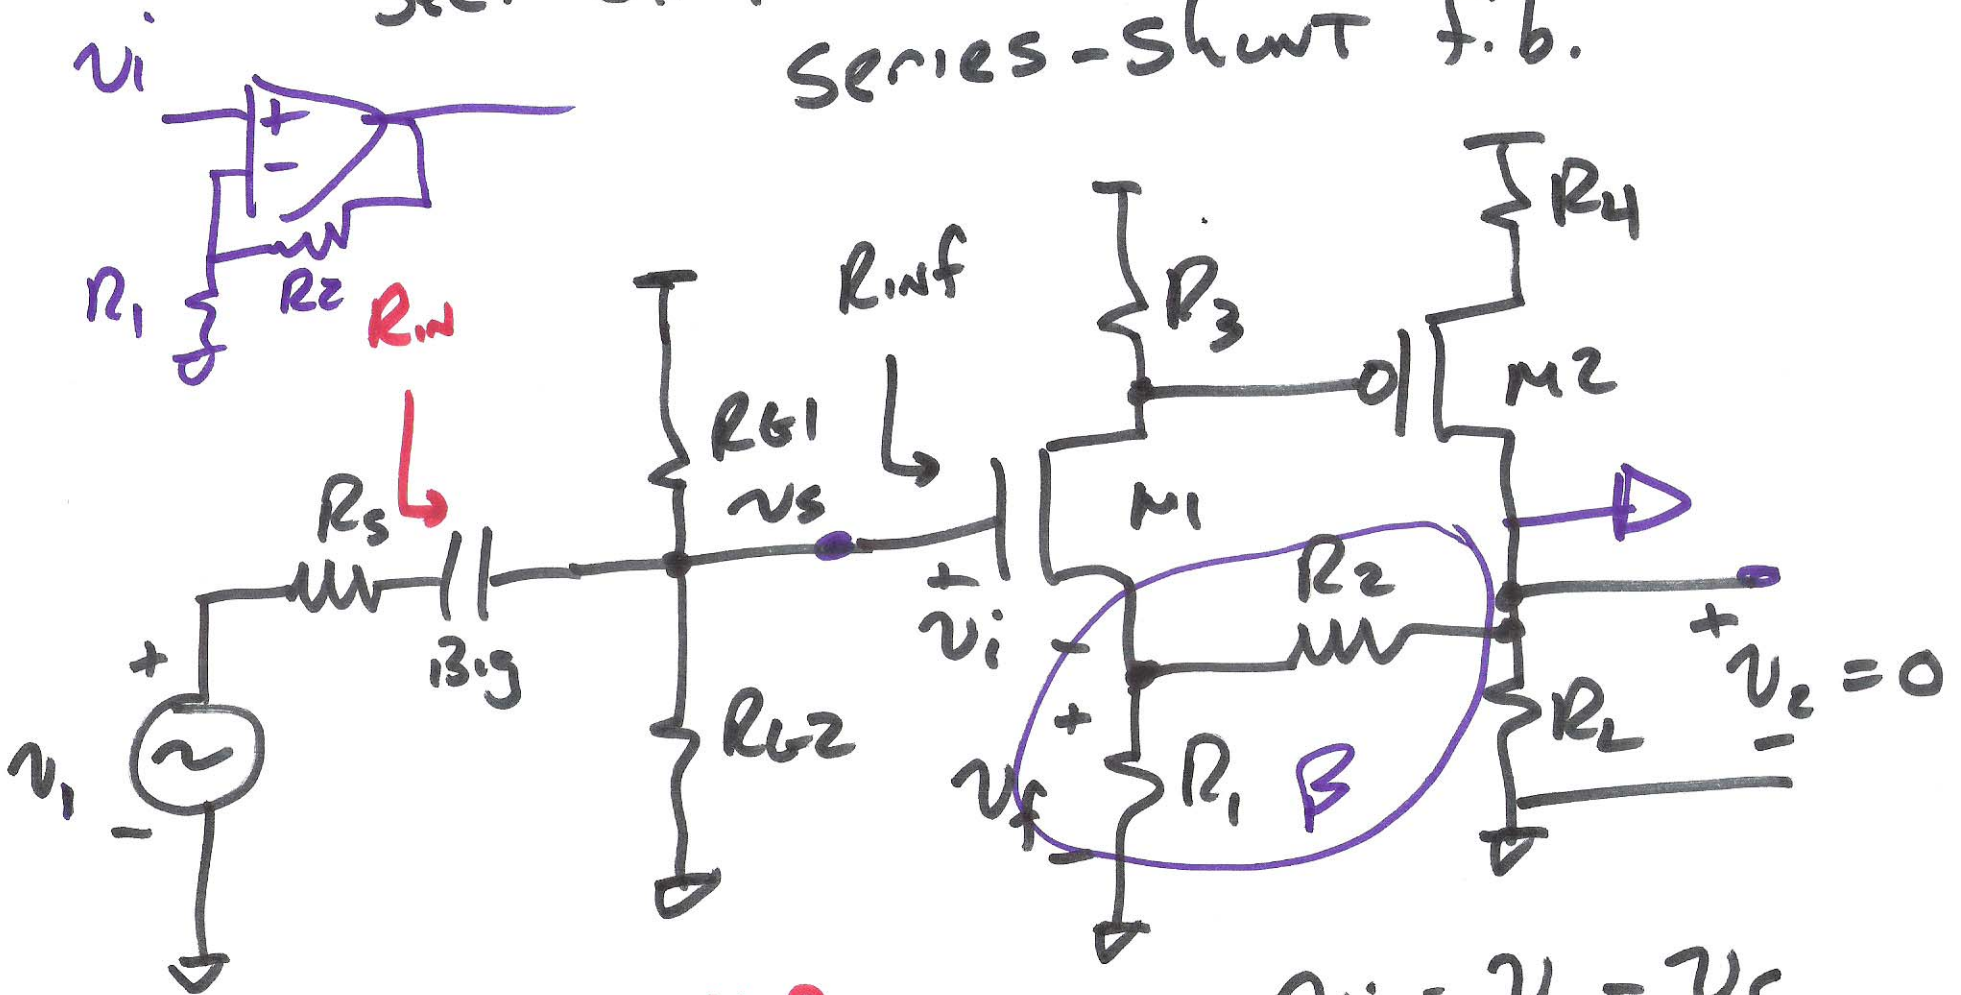 series-shunt f.b.
vi
+
-
R1
R2
RIN
RINf
R3
R4
M2
RG1
vs
M1
RS
Big
+
v1
-
RG2
+
vi
-
R2
+
vf
-
R1
β
RL
+
v2 = 0
-